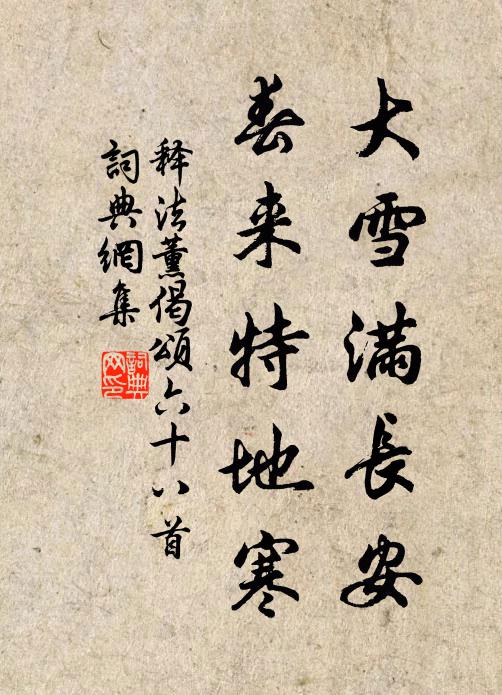 大雪滿長安
春来特地寒
释法薰偈頌六十八首
詞典網集
詞典网印